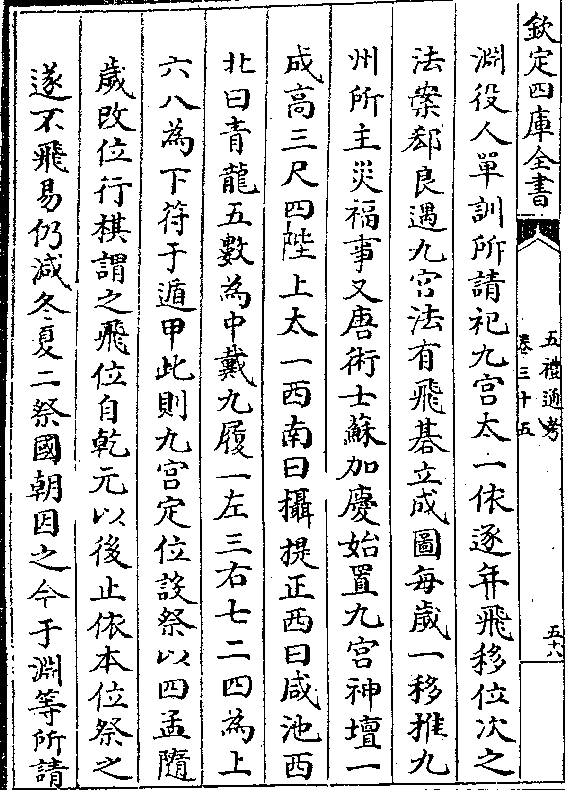 欽定四庫全書
五禮通考
卷三十五
五十八
淵役人單訓所請祀九宮太一依逐年飛移位次之
法案郄良遇九宮法有飛碁立成圖每歲一移推九
州所主災福事又唐術士蘇加慶始置九宮神壇一
成高三尺四陛上太一西南曰攝提正西曰咸池西
北曰青龍五數為中戴九履一左三右七二四為上
六八為下符于遁甲此則九宮定位設祭以四孟隨
歲改位行棋謂之飛位自乾元以後止依本位祭之
遂不飛易仍減冬夏二祭國朝因之今于淵等所請